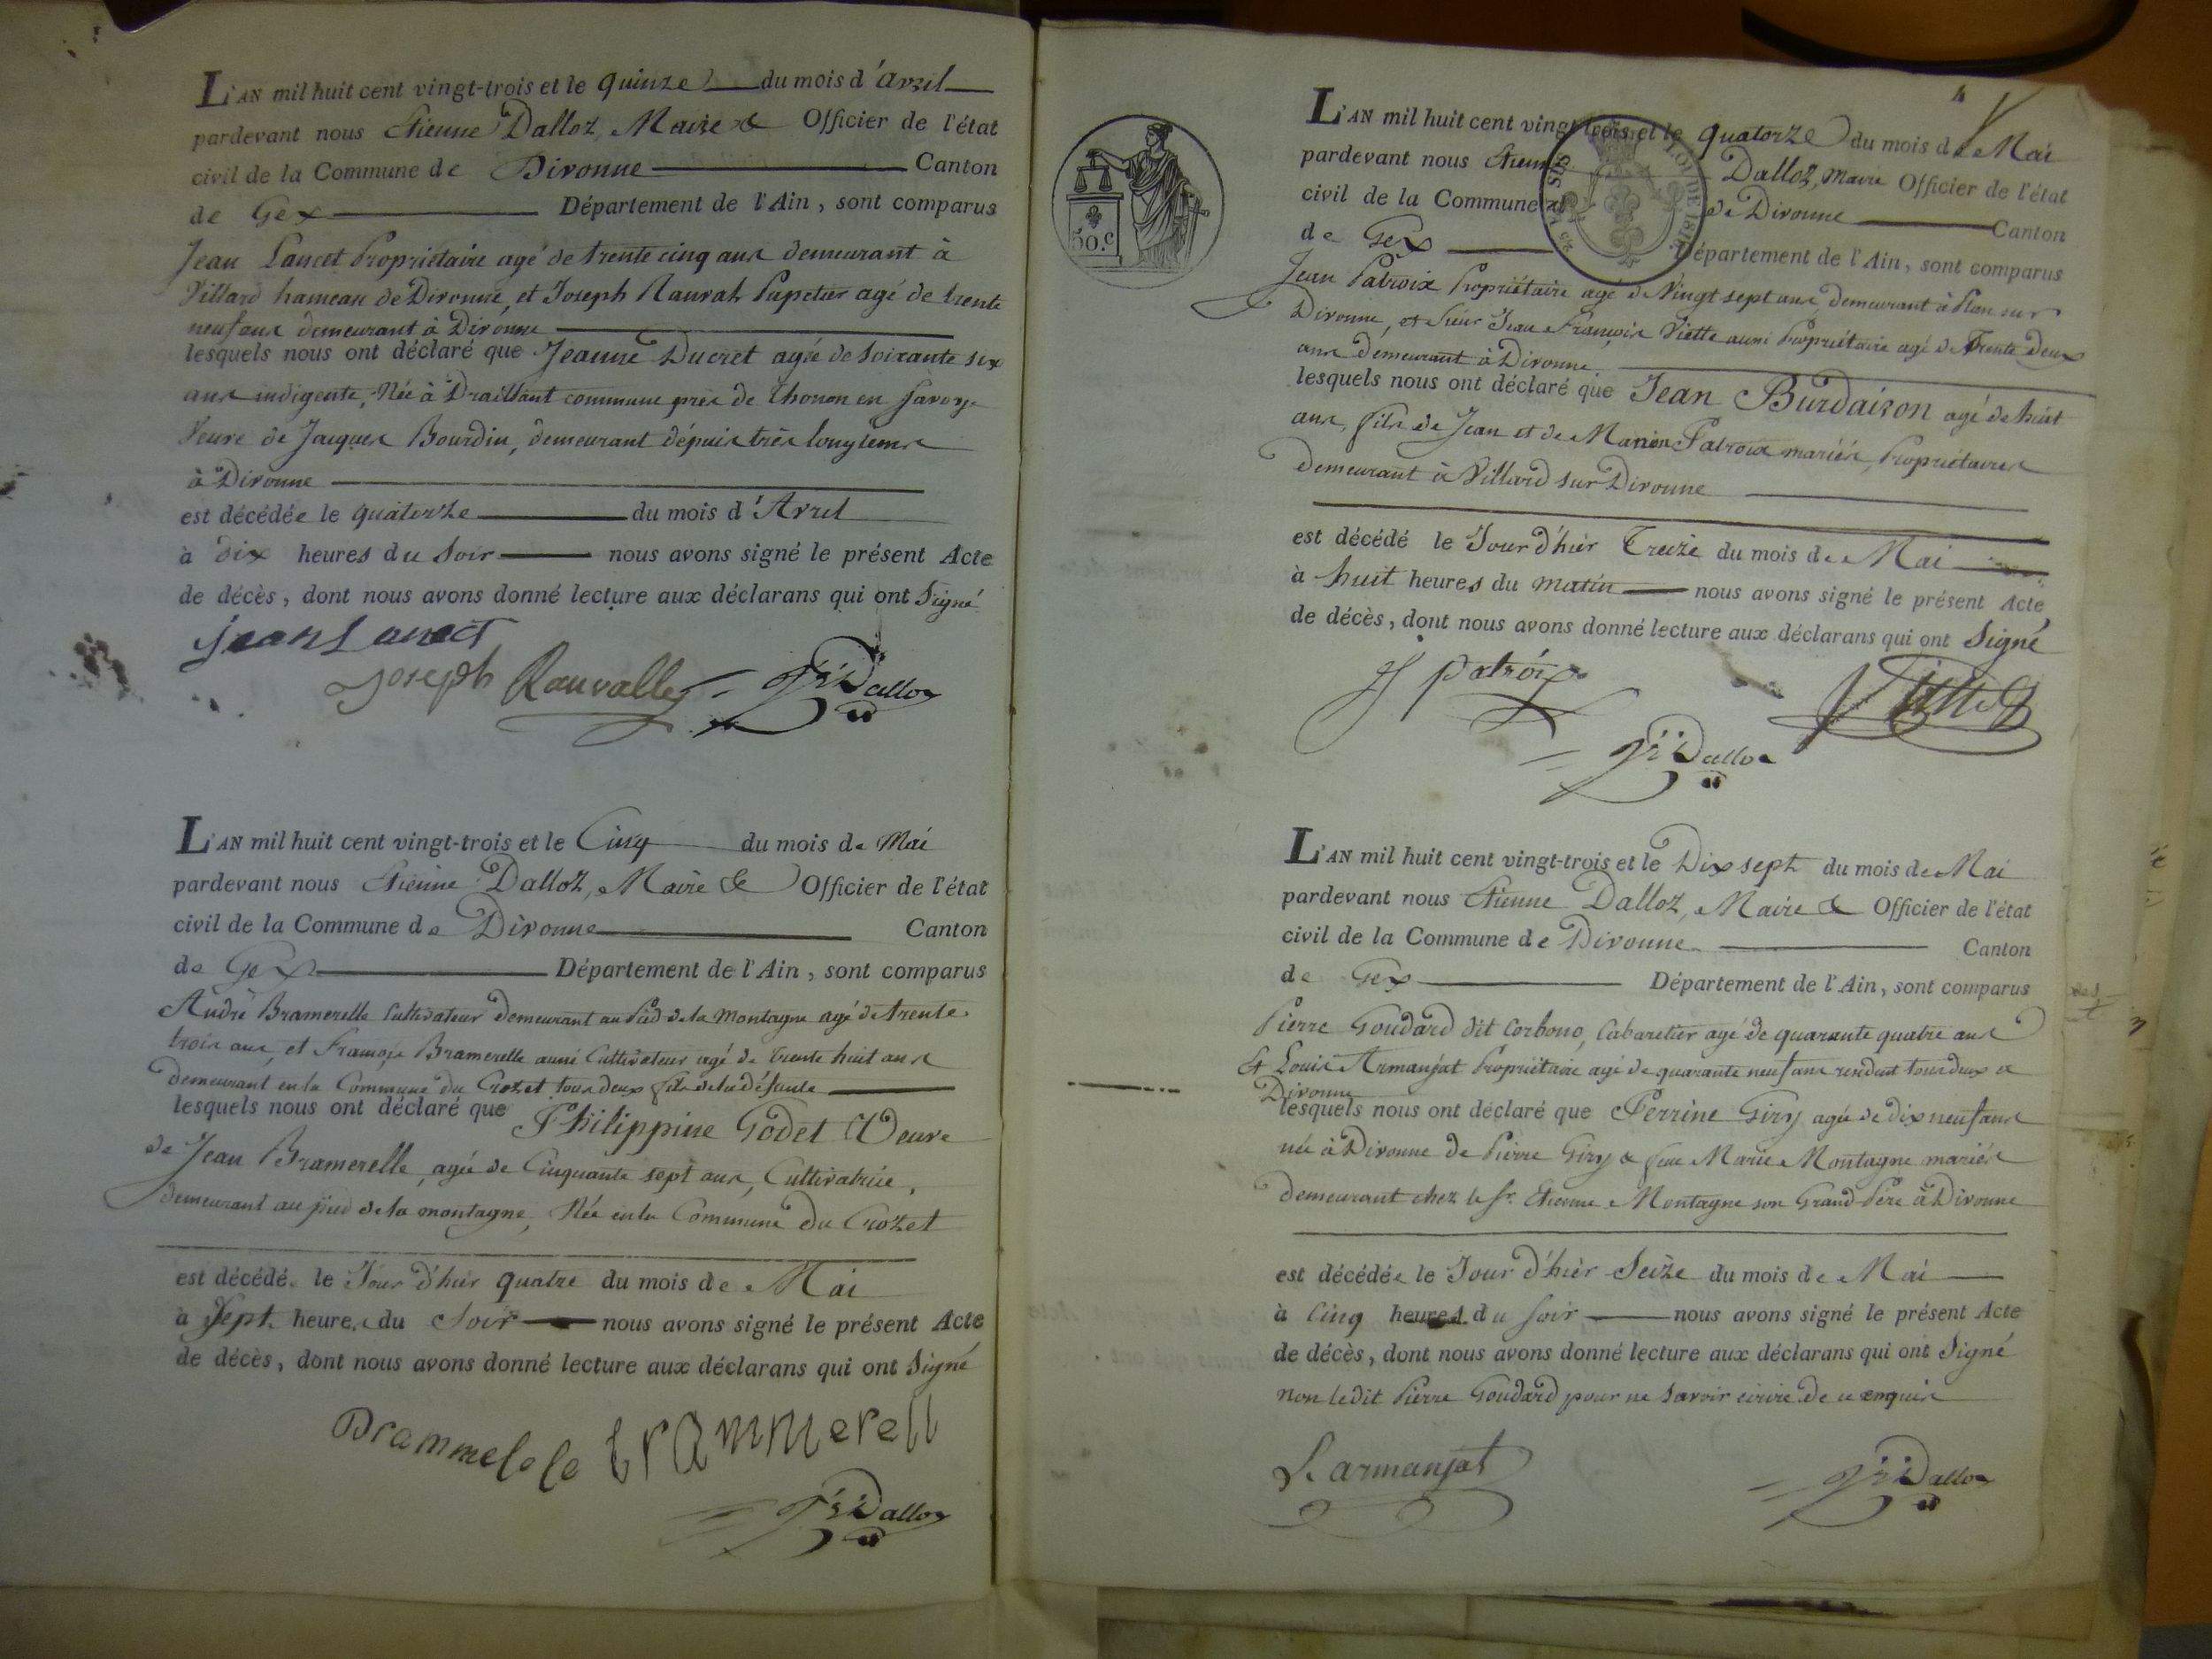 L'AN mil huit cent vingt-trois et le quinze du mois d'Avril
pardevant nous Etienne Dalloz, Maire & Officier de l'état
civil de la Commune de Divonne Canton
de Gex Département de l'Ain, sont comparus
Jean Lancet Propriétaire agé de trente cinq ans demeurant à
Villard hameau de Divonne, et Joseph Rauvah Papetier agé de trente
neuf ans demeurant à Divonne
lesquels nous ont déclaré que Jeanne Ducret agée de Soixante six
ans indigente, Née à Draillant commune près de Thonon en Savoye
Veuve de Jacques Bourdin, demeurant dépuis très longtems
à Divonne
est décédée le quatorze du mois d'Avril
à dix heures du Soir nous avons signé le présent Acte
de décès, dont nous avons donné lecture aux déclarans qui ont Signé
jean Lancet
joseph Rauvalle Dalloz
L'AN mil huit cent vingt-trois et le Cinq du mois de Mai
pardevant nous Etienne Dalloz, Maire & Officier de l'état
civil de la Commune de Divonne Canton
de Gex Département de l'Ain, sont comparus
André Bramerelle Cultivateur demeurant au Pied de la Montagne agé de trente
trois ans, et François Bramerelle aussi Cultivateur agé de trente huit ans
demeurant en la Commune du Crozet tous deux fils de la défunte
lesquels nous ont déclaré que Philippine Godet Veuve
de Jean Bramerelle, agée de Cinquante sept ans, Cultivatrice,
demeurant au pied de la montagne, Née en la Commune du Crozet
est décédé. le Jour d'hier quatre du mois de Mai
à Sept heures du Soir nous avons signé le présent Acte
de décès, dont nous avons donné lecture aux déclarans qui ont Signé
Brammelele brammerell
Dalloz
4
50.c
L'AN mil huit cent vingt-trois et le quatorze du mois de Mai
pardevant nous Etienne Dalloz, Maire Officier de l'état
civil de la Commune de Divonne Canton
de Gex Département de l'Ain, sont comparus
Jean Patroix Propriétaire agé de Vingt sept ans, demeurant à Plan sur
Divonne, et Sieur Jean François Viette aussi Propriétaire agé de Trente deux
ans demeurant à Divonne
lesquels nous ont déclaré que Jean Burdairon agé de huit
ans, fils de Jean et de Marion Patroix mariés, Propriétaires
demeurant à Villard sur Divonne
est décédé le Jour d'hier Treize du mois de Mai
à huit heures du matin nous avons signé le présent Acte
de décès, dont nous avons donné lecture aux déclarans qui ont Signé
J patroix Viette
Dalloz
L'AN mil huit cent vingt-trois et le Dix sept du mois de Mai
pardevant nous Etienne Dalloz, Maire & Officier de l'état
civil de la Commune de Divonne Canton
de Gex Département de l'Ain, sont comparus
Pierre Goudard dit Corbono, Cabaretier agé de quarante quatre ans
Et Louis Armanjat Propriétaire agé de quarante neuf ans résidant tous deux a
Divonne
lesquels nous ont déclaré que Perrine Giry agée de dix neuf ans
née à Divonne de Pierre Giry & feue Marie Montagne mariés
demeurant chez le Sr. Etienne Montagne son Grand Père à Divonne
est décédée le Jour d'hier Seize du mois de Mai
à Cinq heures du soir nous avons signé le présent Acte
de décès, dont nous avons donné lecture aux déclarans qui ont Signé
non ledit Pierre Goudard pour ne savoir écrire de ce enquis
L. armanjat Dalloz